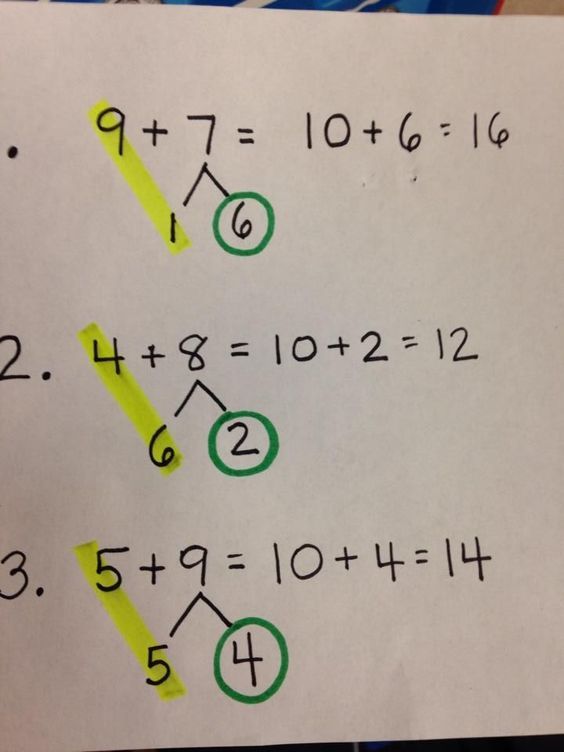 . 9 + 7 = 10 + 6 = 16
1 6
2. 4 + 8 = 10 + 2 = 12
6 2
3. 5 + 9 = 10 + 4 = 14
5 4